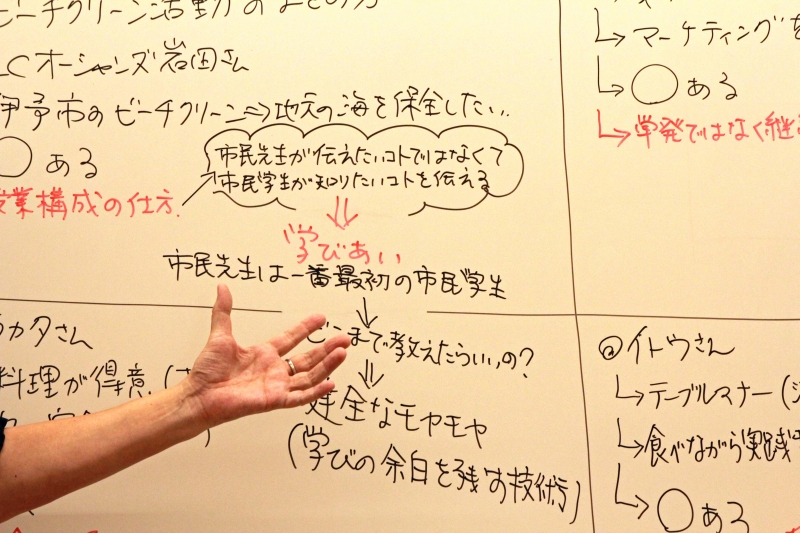 ビーチクリーン活動
LCオーシャンズ岩田さん
伊予市のビーチクリーン⇒地元の海を保全したい..
○ある
授業構成の仕方.
市民先生が伝えたいコトではなくて
市民学生が知りたいコトを伝える
学びあい
市民先生は一番最初の市民学生
どこまで教えたらいいの?
健全なモヤモヤ
(学びの余白を残す技術)
カタさん
料理が得意.
マーケティングを
○ある
単発ではなく継
@イトウさん
テーブルマナー(ジ
食べながら実践
○ある